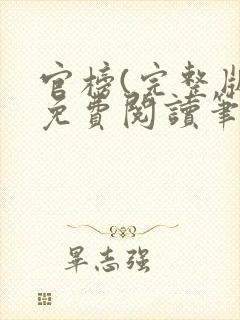 官榜(完整版
免費閱讀筆
畢志强